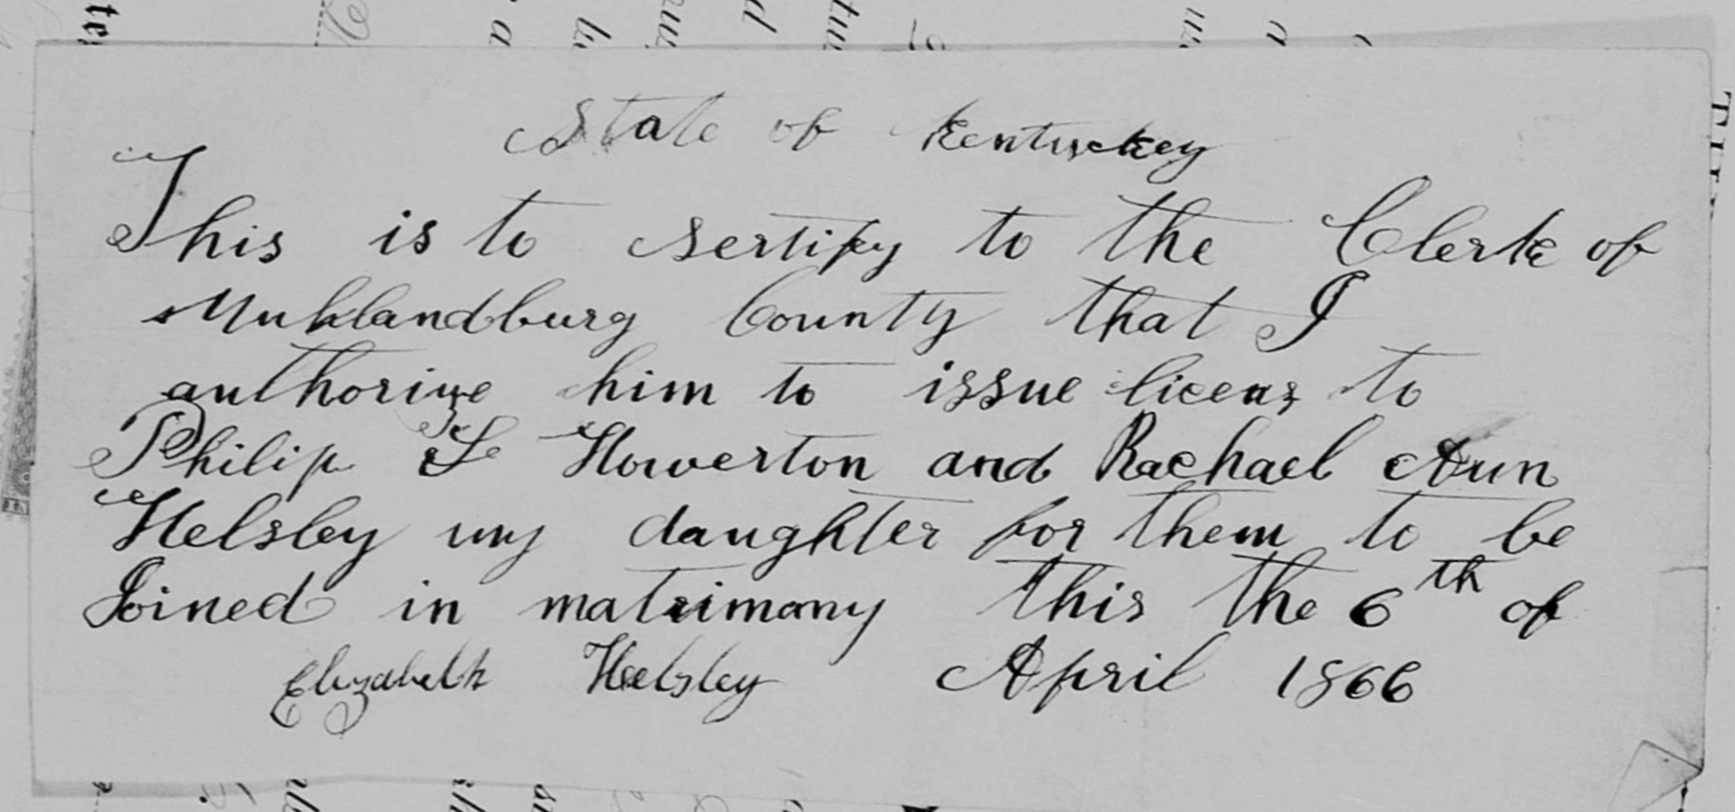 State of Kentuckey
This is to sertify to the Clerk of
Muhlandburg County that I
authorize him to issue licens to
Philip S Howerton and Rachael Ann
Helsley my daughter for them to be
Joined in matrimony this the 6th of
Elizabeth Helsley April 1866